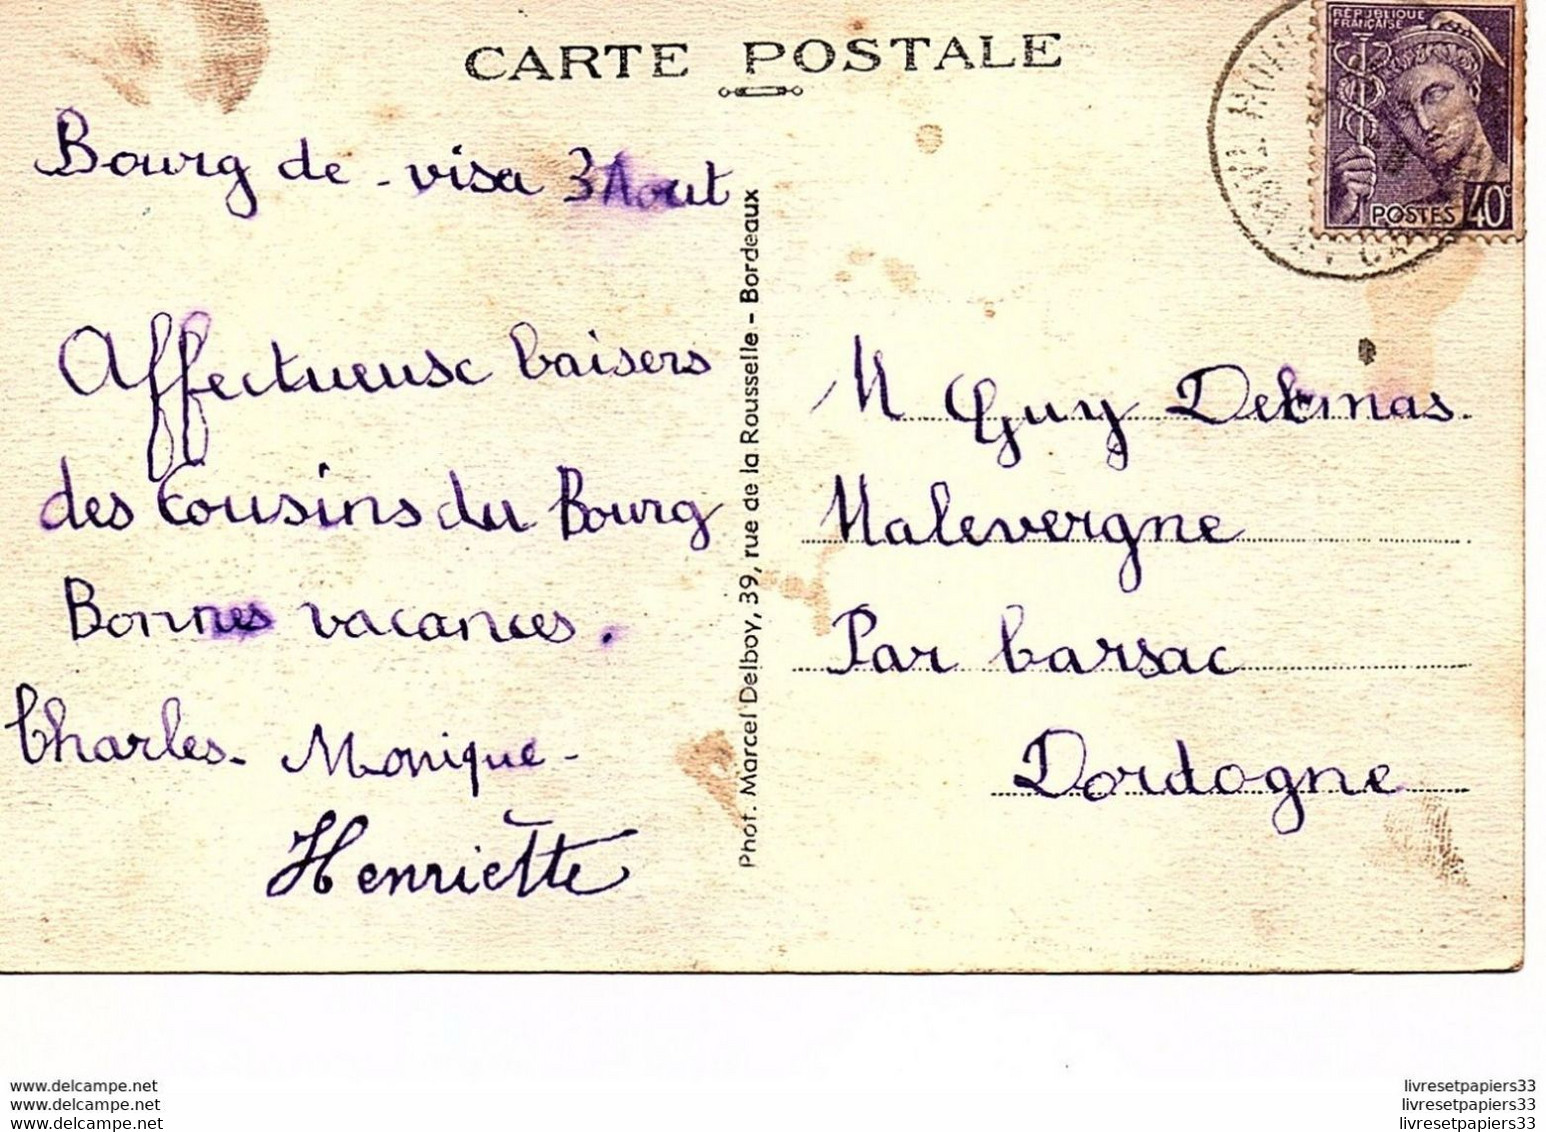 CARTE POSTALE
RÉPUBLIQUE
FRANÇAISE
POSTES 40c
Bourg de - visa 3 Aout
Affectueuse baisers
des Cousins du Bourg
Bonnes vacances.
Charles - Monique -
Henriette
Phot. Marcel Delboy, 39, rue de la Rousselle - Bordeaux
M Guy Delmas
Malevergne
Par barsac
Dordogne
www.delcampe.net
www.delcampe.net
www.delcampe.net
livresetpapiers33
livresetpapiers33
livresetpapiers33